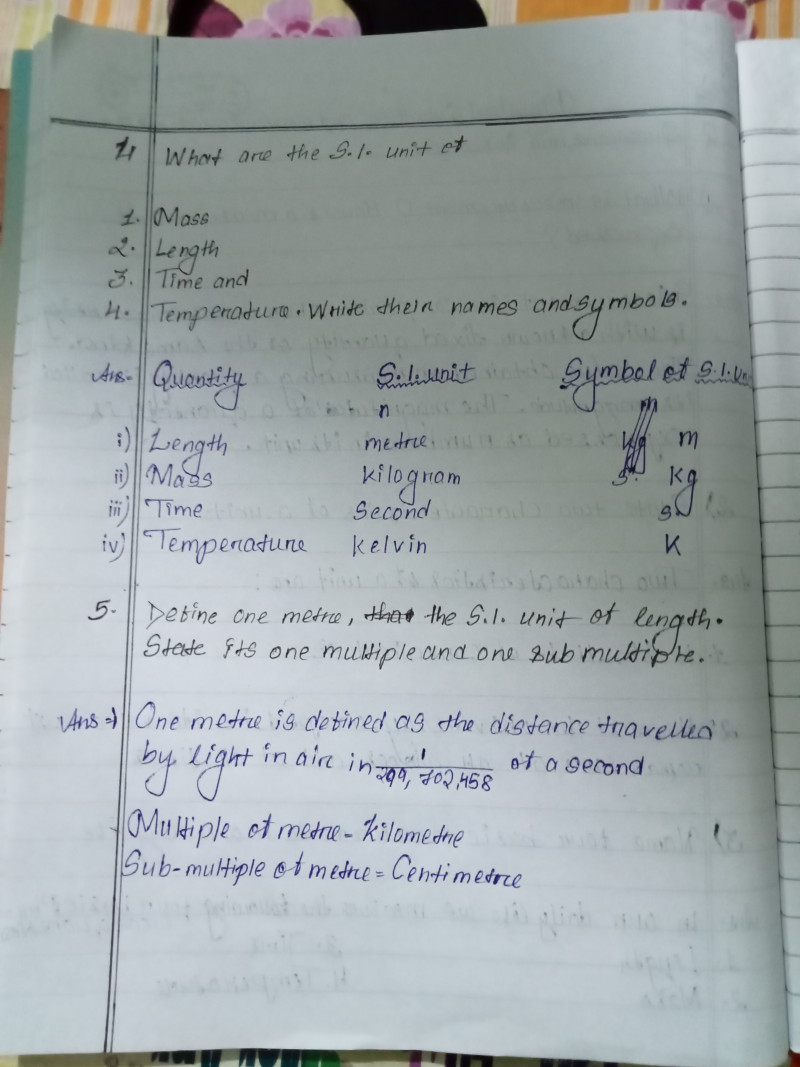 4 What are the S.I. unit of
1. Mass
2. Length
3. Time and
4. Temperature. Write their names and symbols.
Ans- Quantity S.I. unit Symbol of S.I. Un
n m
i) Length metre kg m
ii) Mass kilogram s kg
iii) Time Second s
iv) Temperature kelvin K
5- Define one metre, that the S.I. unit of length.
State its one multiple and one sub multiple.
Ans→ One metre is defined as the distance travelled
by light in air in 1/299,702,458 of a second
Multiple of metre - kilometre
Sub-multiple of metre = Centimetre